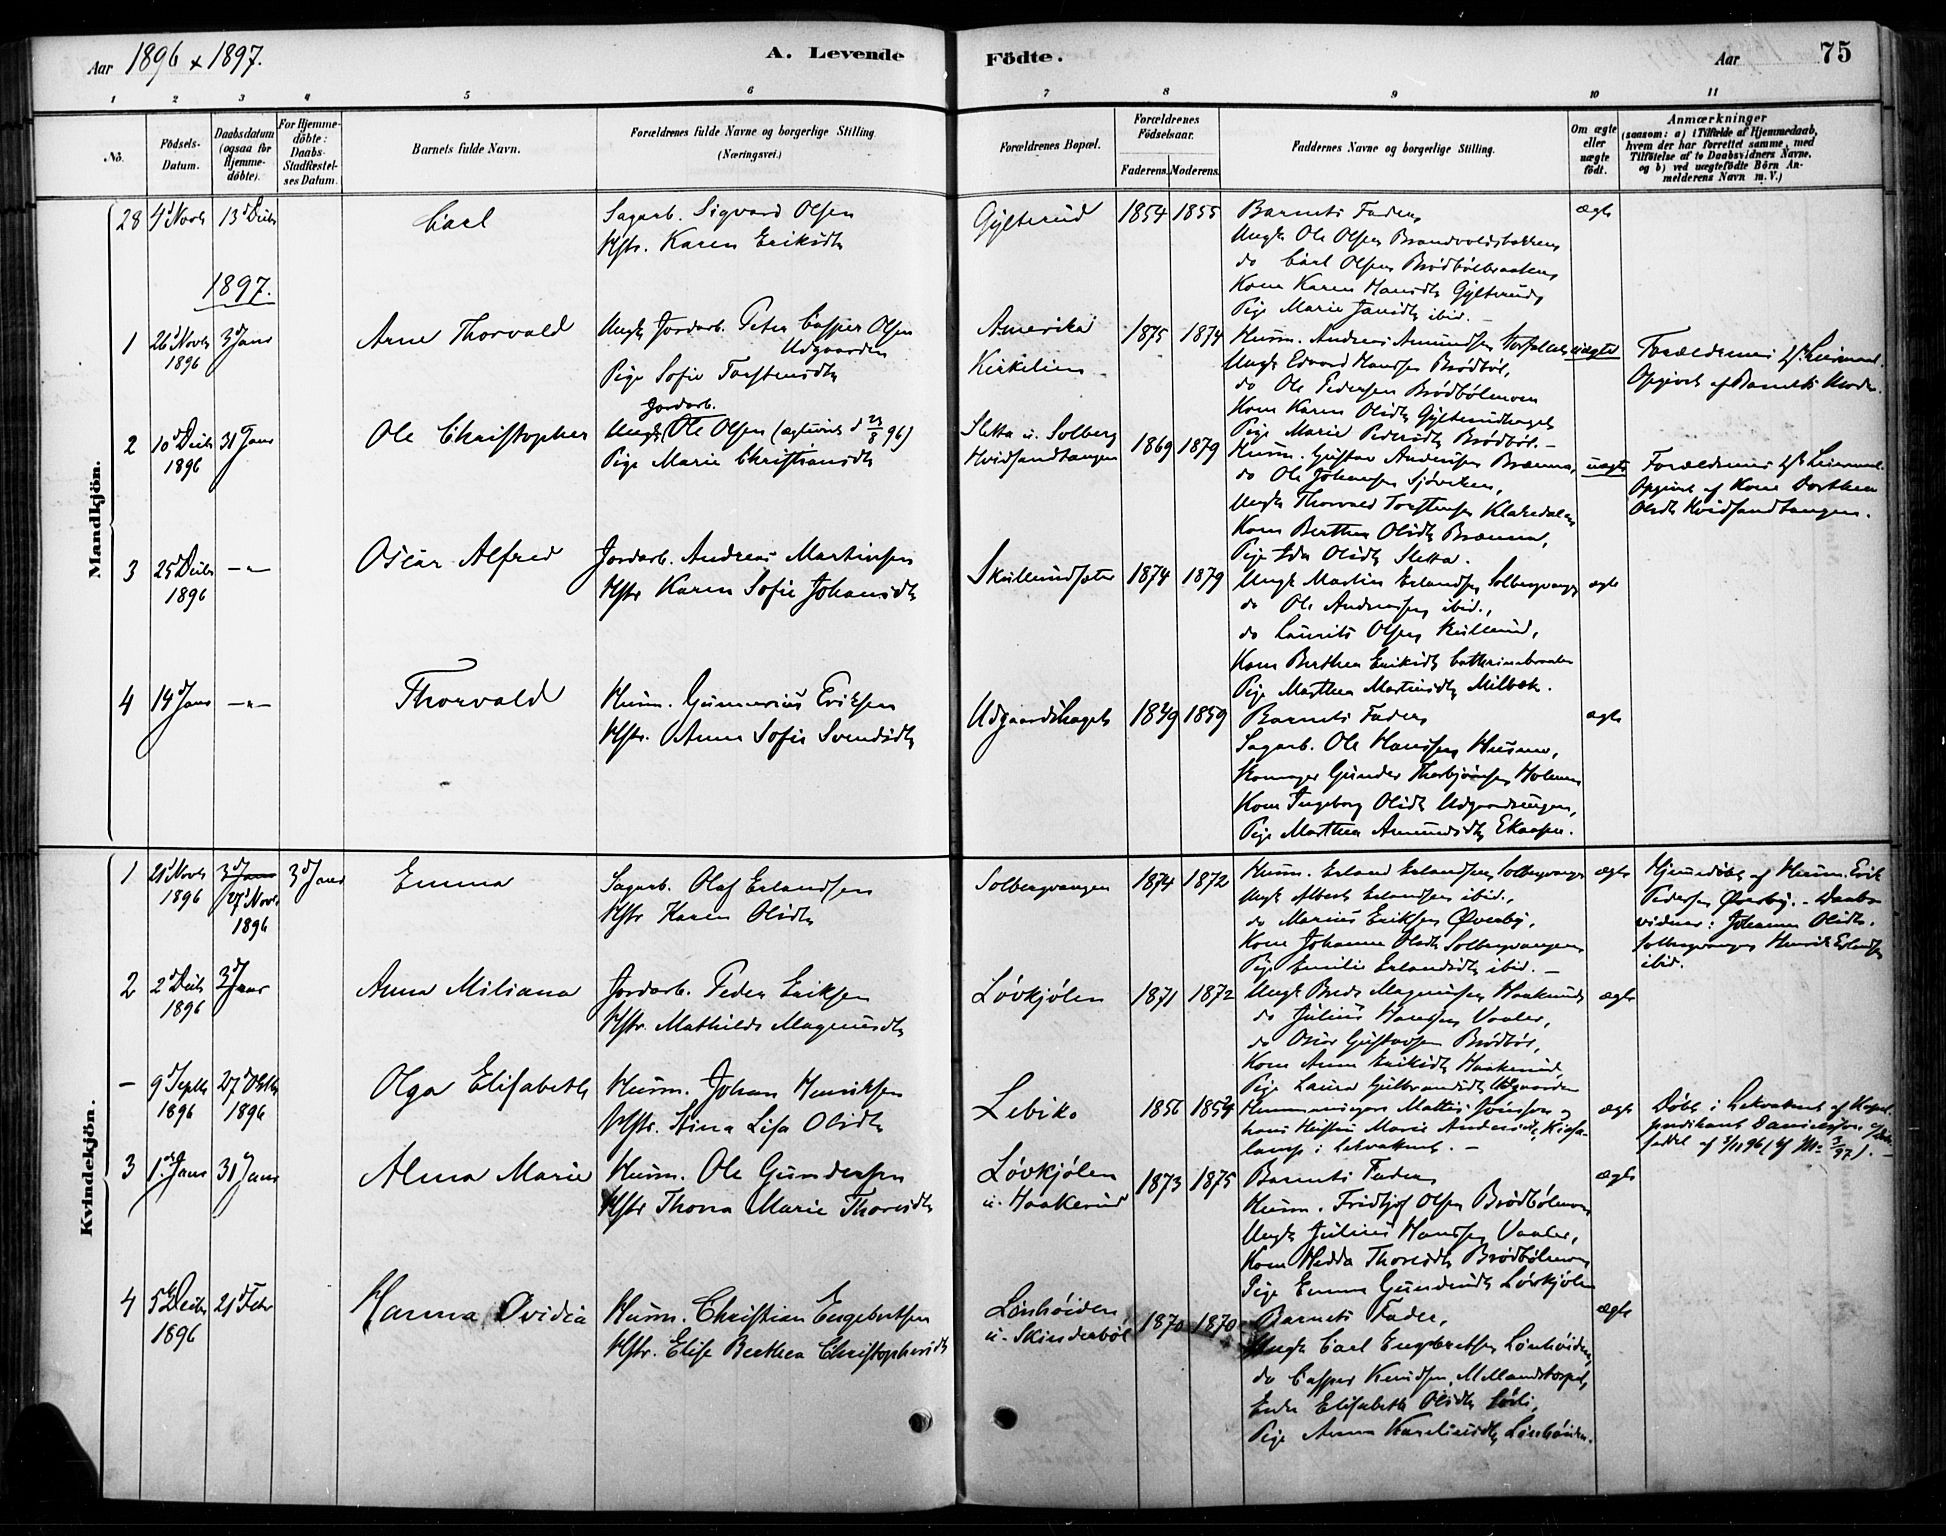 Aar 1896 & 1897.
A. Levende
Födte.
Aar
75
1 2 3 4 5 6 7 8 9 10 11
No.
Födsels-Datum.
Daabsdatum (ogsaa for Hjemme-döbte).
For Hjemme-döbte: Daabs-Stadfæstel-ses Datum.
Barnets fulde Navn.
Forældrenes fulde Navne og borgerlige Stilling (Næringsvei.)
Forældrenes Bopæl.
Forældrenes Födselsaar.
Faderens. Moderens.
Faddernes Navne og borgerlige Stilling.
Om ægte eller uægte födt.
Anmærkninger
(saasom: a) i Tilfælde af Hjemmedaab, hvem der har forrettet samme, med Tilföielse af to Daabsvidners Navne, og b) ved uægtefödte Börn An-melderens Navn m. V.)
Mandkjön.
28 4d Novb 13d Decb Carl
Sagarb. Sigvard Olsen
Hstr. Karen Eriksdtr
Gylterud 1854 1855
Barnets Fader,
Ungk Ole Olsen Brandvoldsbakken
do Carl Olsen Brödbölbraaten,
Kone Karen Hansdtr Gylterud,
Pige Marie Jansdtr ibid.
ægte
1897.
1 26d Novb 1896 3d Janr Arne Thorvald
Ungk Jordarb. Peter Casper Olsen
Udgaarden
Pige Sofie Torstensdtr
Amerika
Kirkelien
1875 1874
Husm. Andreas Amundsen
Ungk Edvard Hansen Brödböl,
do Ole Pedersen Brödbölmoen
Kone Karen Olsdtr Gylterudhaget
Pige Marie Pedersdtr Brödböl.
uægte
Forældrenes 1ste Leiermaal.
Opgivet af Barnets Moder.
2 10d Decb 1896 31 Janr Ole Christopher
Jordarb.
Ungk Ole Olsen (ægteviet d 21/8 96)
Pige Marie Christiansdtr
Sletta u. Solberg
Hvidsandtangen
1869 1879
Husm. Gustav Andersen Brænna,
do Ole Johansen Sjöviken,
Ungk Thorvald Torstensen Klakedalen
Kone Berthea Olsdtr Brænna,
Pige Ida Olsdtr Sletta.
uægte
Forældrenes 1ste Leiermaal.
Opgivet af Kone Dorthea
Olsdtr Hvidsandtangen.
3 25d Decb 1896 -"- Oscar Alfred
Jordarb. Andreas Martinsen
Hstr Karen Sofie Johansdtr
Skullundsæter 1874 1879
Ungk Martin Erlandsen Solbergvangen
do Ole Andreassen ibid.,
do Laurits Olsen Kullerud,
Kone Berthea Eriksdtr
Pige Marthea Martinsdtr Milbæk.
ægte
4 14d Janr -"- Thorvald
Husm. Gunnerius Eriksen
Hstr. Anne Sofie Svendsdtr
Udgaardshaget 1849 1859
Barnets Fader,
Sagarb. Ole Hansen
Skomager Gunder Thorbjörnsen Holmen
Kone Ingeborg Olsdtr Udgaardsengen,
Pige Marthea Amundsdtr Ekaasen.
ægte
Kvindekjön.
1 21d Novb 1896 3d Janr 27d Novb 1896 3d Janr Emma
Sagarb. Olaf Erlandsen
Hstr Karen Olsdtr
Solbergvangen 1874 1872
Husm. Erland Erlandsen Solbergvangen
Ungk Albert Erlandsen ibid.,
do Marius Eriksen Øverby,
Kone Johanne Olsdtr Solbergvangen
Pige Emilie Erlandsdtr ibid.
ægte
Hjemmedöbt af Husm. Erik
Pedersen Øverby. - Daabs-
vidner: Johanne Olsdtr.
Solbergvangen Henrik Erlandsen
ibid.
2 2d Decb 1896 3d Janr Anna Miliana
Jordarb. Peder Eriksen
Hstr. Mathilde Magnusdtr
Lövkjölen 1871 1872
Ungk Brede Magnussen Haakerud
do Julius Hansen Vaaler,
do Oscar Gustavsen Brödböl,
Kone Anne Eriksdtr Haakerud,
Pige Laura Gulbrandsdtr Udgaarden
ægte
- 9d Septb 1896 27d Oktb 1896 Olga Elisabeth
Husm. Johan Henriksen
Hstr. Stina Lisa Olsdtr
Lebiko 1856 1854
Hemmansegare Mattis Jönsson og
hans Hustru Marie Andersdtr
i Lekvattnet.
ægte
Döbt i Lekvattnet af Kapel-
predikant Danielsson
3 1ste Janr 31d Janr Alma Marie
Husm. Ole Gundersen
Hstr Thona Marie Thoresdtr
Lövkjölen
u. Haakerud
1873 1875
Barnets Fader,
Husm. Fridtjof Olsen Brödbölmoen
Ungk Julius Hansen Vaaler,
Kone Hedda Thoresdtr Brödbölmoen
Pige Emma Gundersdtr Lövkjölen
ægte
4 5te Decb 1896 21d Febr Hanna Ovidia
Husm. Christian Engebretsen
Hstr. Elise Berthea Christophersdtr
Linhöiden
u. Skinderböl
1870 1870
Barnets Fader,
Ungk Carl Engebretsen Linhöiden,
do Casper Knudsen, Mellandstorpet,
Enke Elisabeth Olsdtr
Pige Anna Karelinsdtr Linhöiden.
ægte